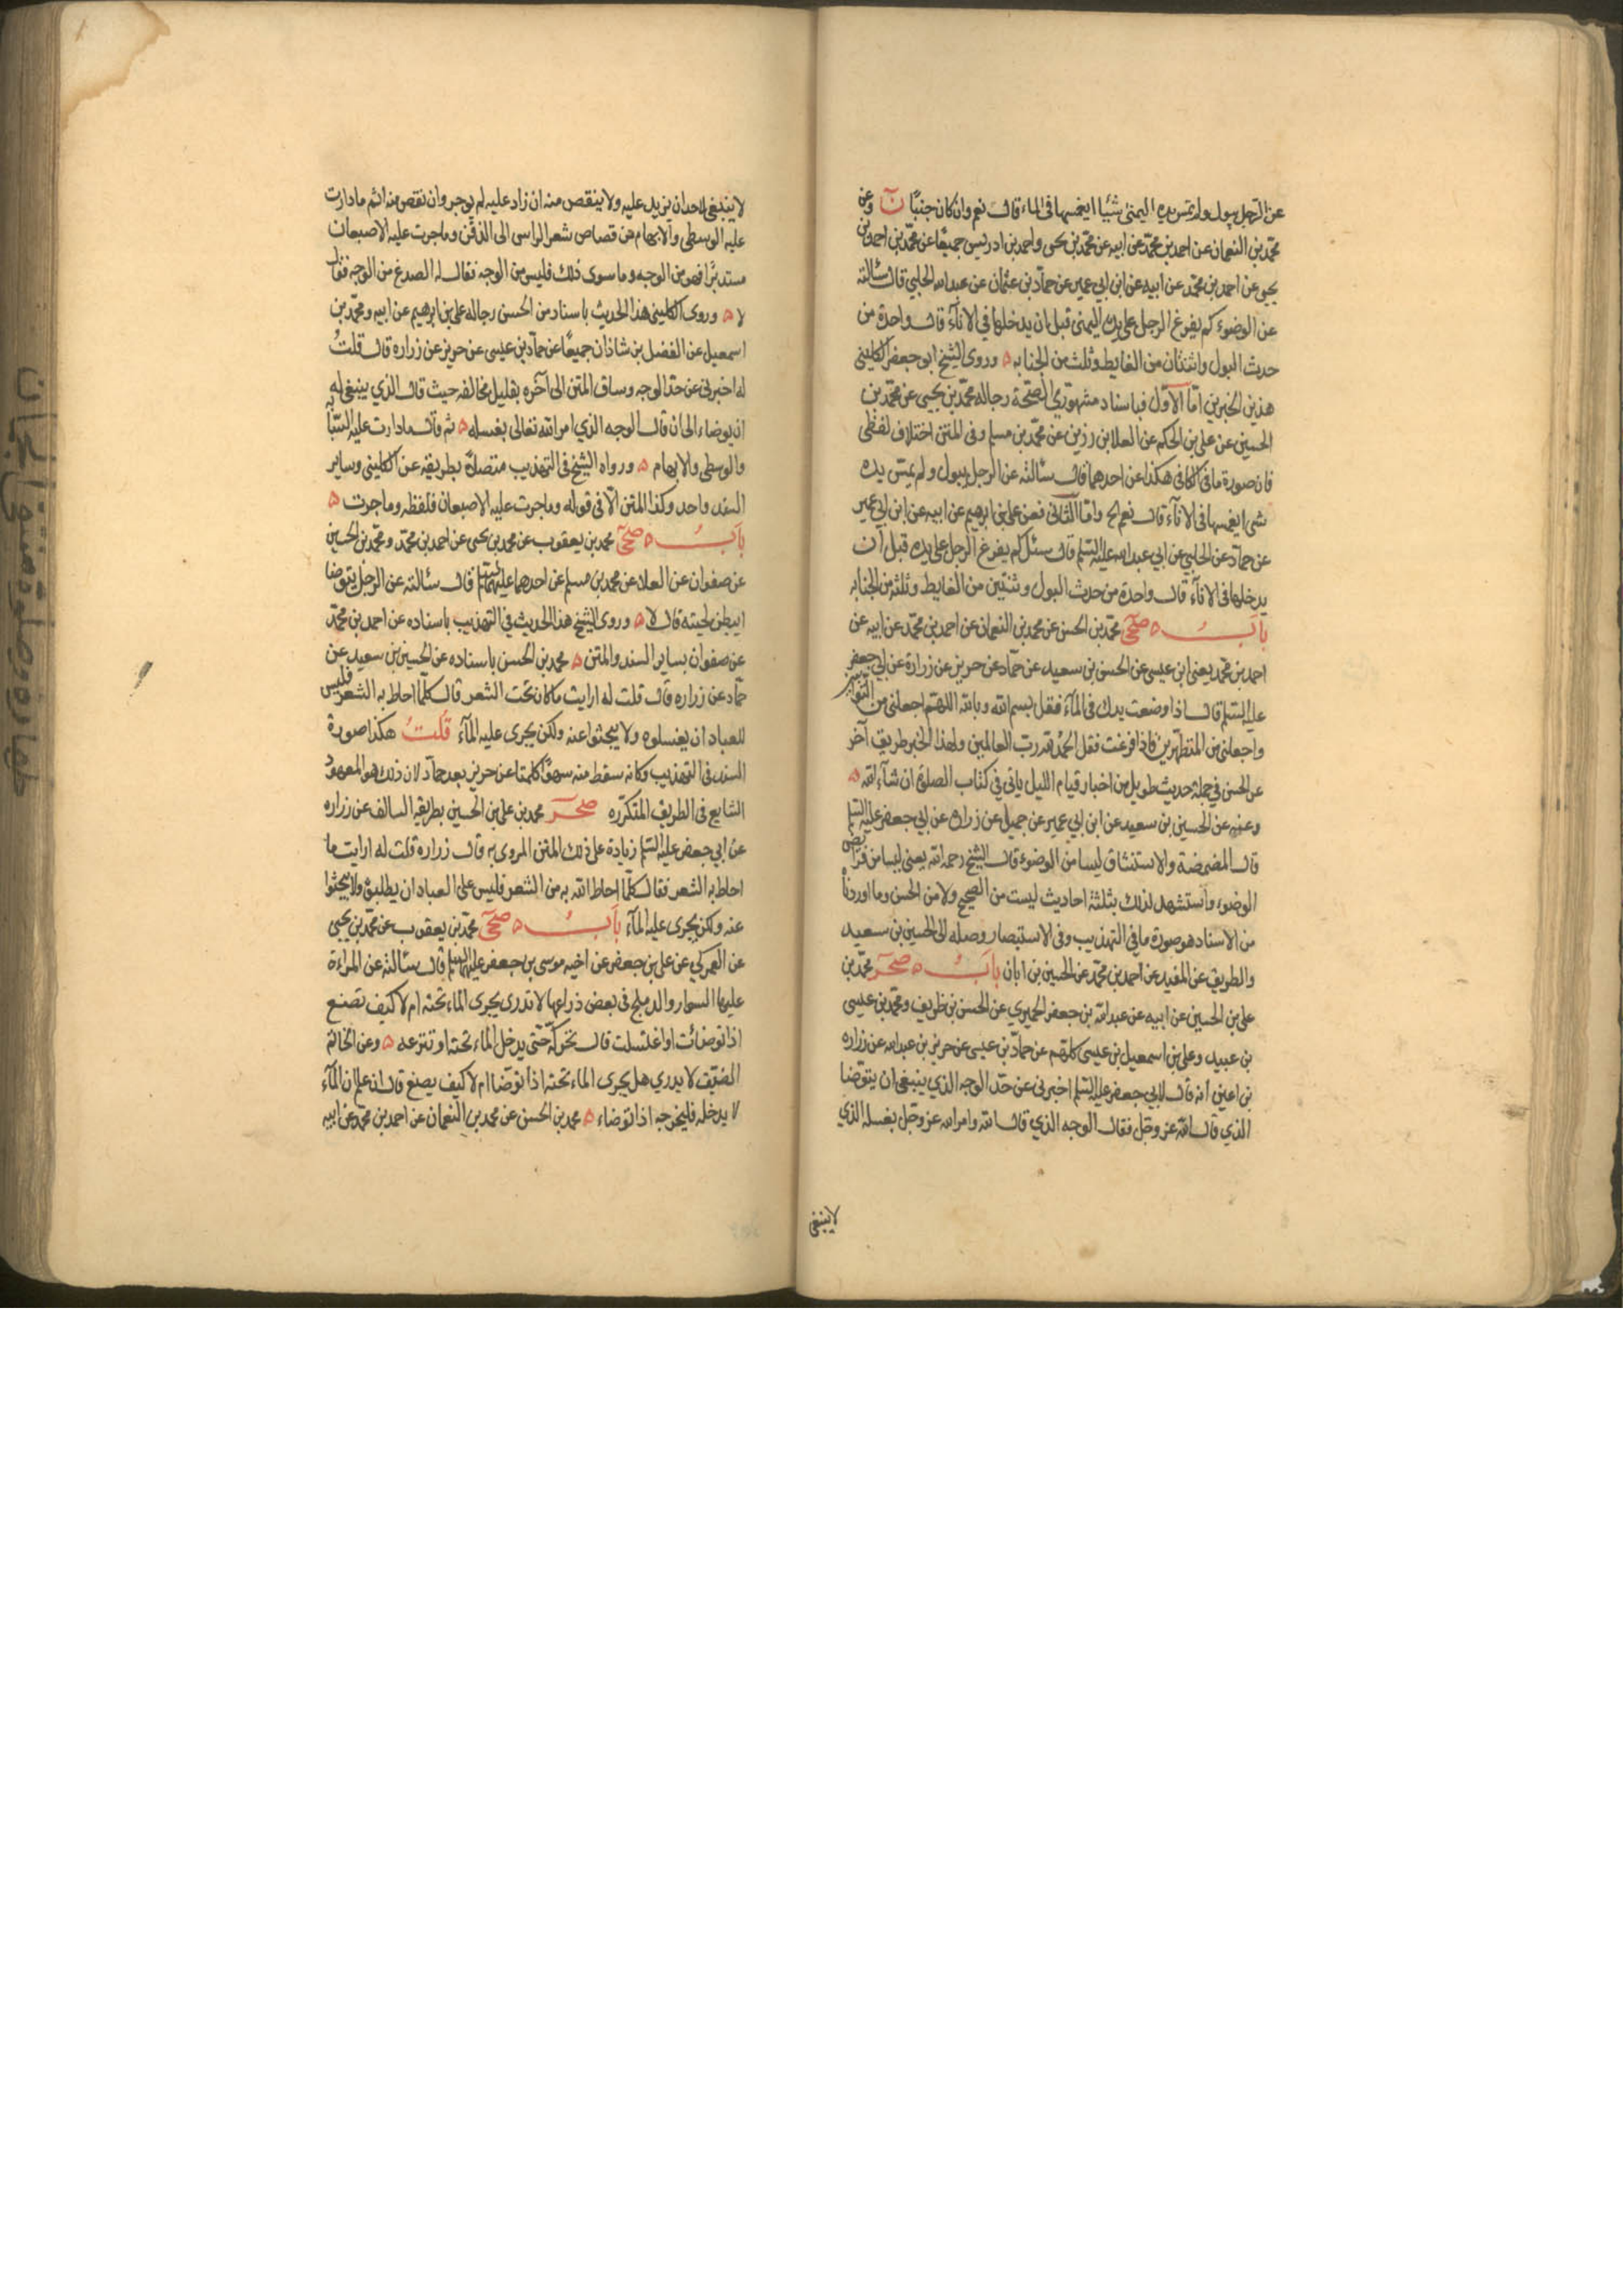 عن الرجل يبول ولم تمس يده اليمنى شيئا ايغمسها فى الماء قال نعم وان كان جنبًا ن وعن
محمّد بن النعمان عن احمد بن محمّد عن ابيه عن محمّد بن يحيى واحمد بن ادريس جميعًا عن محمّد بن احمد بن
يحيى عن احمد بن محمّد عن ابيه عن ابن ابي عمير عن حمّاد بن عثمان عن عبيدالله الحلبي قال سئالته
عن الوضوء كم يفرغ الرجل على يده اليمنى قبل ان يدخلها في الاناء قال واحدة من
حدث البول واثنتان من الغايط وثلث من الجنابه ۵ وروى الشيخ ابو جعفر الكلينى
هذين الخبرين امّا الاوّل فباسناد مشهوري الصّحة رجاله محمّد بن يحيى عن محمّد بن
الحسين عن على بن الحكم عن العلا بن رزين عن محمّد بن مسلم وفى المتن اختلاف لفظى
فان صورة ما فى الكافى هكذا عن احدهما قال سئالته عن الرجل يبول ولم يمس يده
شى ايغمسها فى الاناء قال نعم الخ وامّا الثانى فعن على بن ابرهيم عن ابيه عن ابن ابي عمير
عن حمّاد عن الحلبي عن ابي عبد الله عليه السّلم قال سئل كم يفرغ الرجل على يده قبل ان
يدخلها فى الاناء قال واحدة من حدث البول وثنتين من الغايط وثلثه من الجنابه
بابُ ۵ صحى محمّد بن الحسن عن محمد بن النعمان عن احمد بن محمّد عن ابيه عن
احمد بن محمّد يعنى ابن عيسى عن الحسن بن سعيد عن حمّاد عن حريز عن زرارة عن ابي جعفر
عليه السّلم قال اذا وضعت يدك فى الماء فقل بسم الله وبالله اللهمّ اجعلنى من التوّابين
واجعلنى من المتطهّرين فاذا فرغت فقل الحمد لله ربّ العالمين ولهذا الخبر طريق آخر
عن الحسن في جملة حديث طويل من اخبار قيام الليل ياتى في كتاب الصلوة ان شاء الله ۵
وعنه عن الحسين بن سعيد عن ابن ابي عمير عن جميل عن زراره عن ابي جعفر عليه السّلم
قال المضمضة والاستنشاق ليسا من الوضوء قال الشيخ رحمه الله يعنى ليسا من فرايض
الوضوء واستشهد لذلك بثلثة احاديث ليست من الصحيح ولا من الحسن وما اوردناه
من الاسناد هو صورة ما فى التهذيب وفى الاستبصار وصله الى الحسين بن سعيد
والطريق عن المفيد عن احمد بن محمّد عن الحسين بن ابان بابُ ۵ صحر محمّد بن
على بن الحسين عن ابيه عن عبد الله بن جعفر الحميرى عن الحسن بن ظريف ومحمّد بن عيسى
بن عبيد وعلى بن اسمعيل بن عيسى كلهم عن حمّاد بن عيسى عن حريز بن عبدالله عن زراره
بن اعين انه قال لابي جعفر عليه السّلم اخبرنى عن حدّ الوجه الذي ينبغى ان يتوضا
الذي قال الله عز وجّل فقال الوجه الذي قال الله وامر الله عز وجّل بغسله الذي
لاينبغى
لا ينبغى لاحد ان يزيد عليه ولا ينقص منه ان زاد عليه لم يوجر وان نقص منه اثم ما دارت
عليه الوسطى والابهام من قصاص شعر الراس الى الذقن وماجرت عليه الاصبعان
مستديرًا فهو من الوجه وما سوى ذلك فليس من الوجه فقال له الصدغ من الوجه فقال
لا ۵ وروى الكلينى هذا الحديث باسناد من الحسن رجاله على بن ابرهيم عن ابيه ومحمّد بن
اسمعيل عن الفضل بن شاذان جميعًا عن حمّاد بن عيسى عن حريز عن زراره قال قلتُ
له اخبرنى عن حدّ الوجه وساق المتن الى آخره بقليل مخالفه حيث قال الذي ينبغى له
ان يوضاء الى ان قال الوجه الذي امر الله تعالى بغسله ۵ ثم قال ما دارت عليه السّبّابة
والوسطى والابهام ۵ ورواه الشيخ فى التهذيب متصلاً بطريقه عن الكلينى وساير
السند واحد وكذا المتن الّا فى قوله وماجرت عليه الاصبعان فلفظه وماجرت ۵
بابُ ۵ صحى محمد بن يعقوب عن محمد بن يحيى عن احمد بن محمّد ومحمّد بن الحسين
عن صفوان عن العلا عن محمد بن مسلم عن احدهما عليهما السلم قال سئالته عن الرجل يتوضا
ايبطن لحيته قال لا ۵ وروى الشيخ هذا الحديث في التهذيب باسناده عن احمد بن محمّد
عن صفوان بساير السند والمتن ۵ محمد بن الحسن باسناده عن الحسين بن سعيد عن
حمّاد عن زراره قال قلت له ارايت ما كان تحت الشعر قال كلّما احاط به الشعر فليس
للعباد ان يغسلوه ولا يبحثوا عنه ولكن يجرى عليه الماء قلتُ هكذا صورة
السند فى التهذيب وكانه سقط منه سهوًا كلمتا عن حريز بعد حمّاد لان ذلك هو المعهود
الشايع فى الطريق المتكرّره صحر محمد بن على بن الحسين بطريقه السالف عن زراره
عن ابي جعفر عليه السّلم زيادة على ذلك المتن المروى به قال زراره قلت له ارايت ما
احاط به الشعر فقال كلّما احاط الله به من الشعر فليس على العباد ان يطلبوه ولا يبحثوا
عنه ولكن يجرى عليه الماء بابُ ۵ صحى محمّد بن يعقوب عن محمّد بن يحيى
عن العمركي عن على بن جعفر عن اخيه موسى بن جعفر عليهما السلم قال سئالته عن المراءة
عليها السوار والدملج فى بعض ذراعها لا تدرى يجرى الماء تحته ام لا كيف تصنع
اذا توضئات او اغتسلت قال تحركه حتّى يدخل الماء تحته او تنزعه ۵ وعن الخاتم
الضيّق لا يدري هل يجرى الماء تحته اذا توضا ام لا كيف يصنع قال ان علم ان الماء
لا يدخله فليخرجه اذا توضاء ۵ محمد بن الحسن عن محمد بن النعمان عن احمد بن محمّد عن ابيه